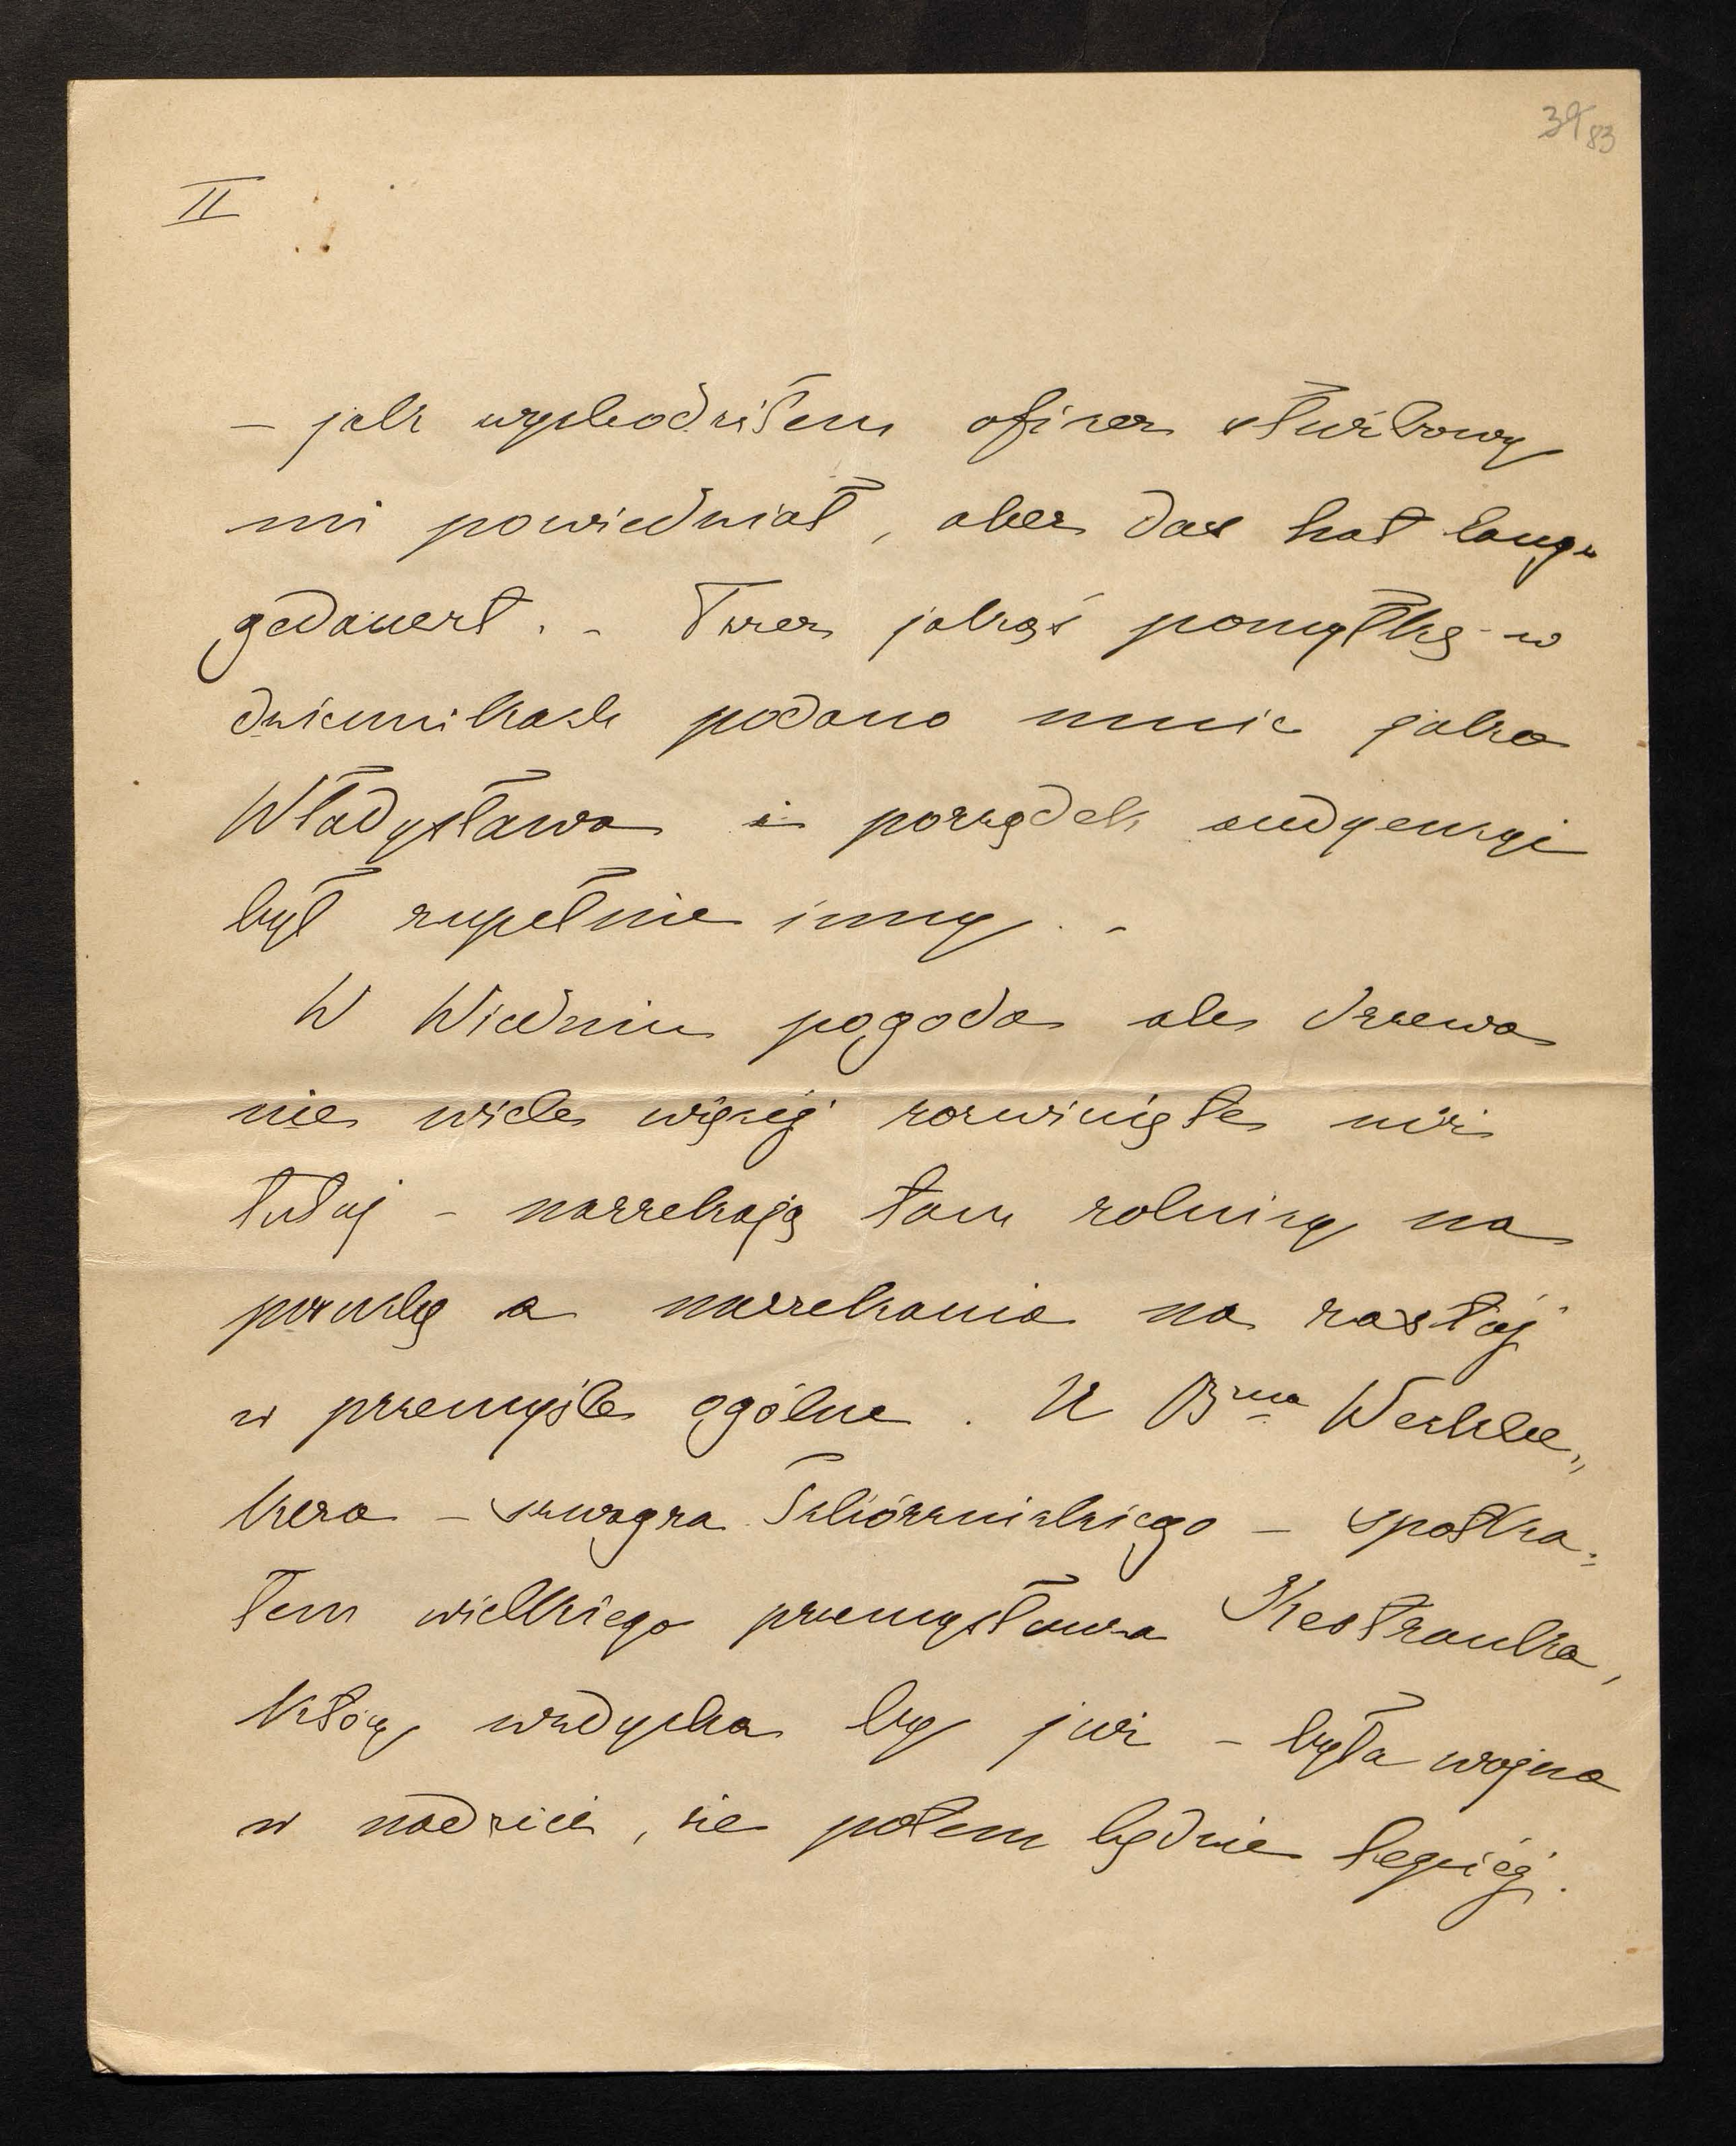 39 83
II
– jak wychodziłem oficer służbowy
mi powiedział, aber das hat lange
gedauert. – Przez jakąś pomyłkę w
dziennikach podano mnie jako
Władysława i porządek audyencyi
był zupełnie inny. –
W Wiedniu pogoda ale drzewa
nie wiele więcej rozwinięte niż
tutaj – narzekają tam rolnicy na
posuchę a narzekania na zastój
w przemyśle ogólne. U Bna
kera – szwagra Skibniewskiego – spotka=
łem wielkiego przemysłowca Kestranka,
który wzdycha by już – była wojna
w nadziei, że potem będzie lepiej.